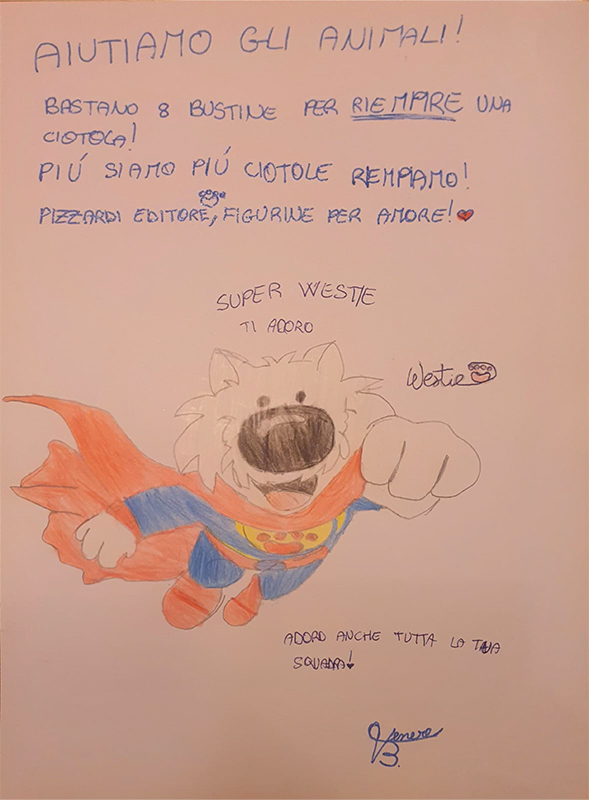 AIUTIAMO GLI ANIMALI!
BASTANO 8 BUSTINE PER RIEMPIRE UNA
CIOTOLA!
PIÚ SIAMO PIÚ CIOTOLE REMPIAMO!
PIZZARDI EDITORE, FIGURINE PER AMORE!
SUPER WESTIE
TI ADORO
Westie
ADORO ANCHE TUTTA LA TUA
SQUADRA!
Venere
B.